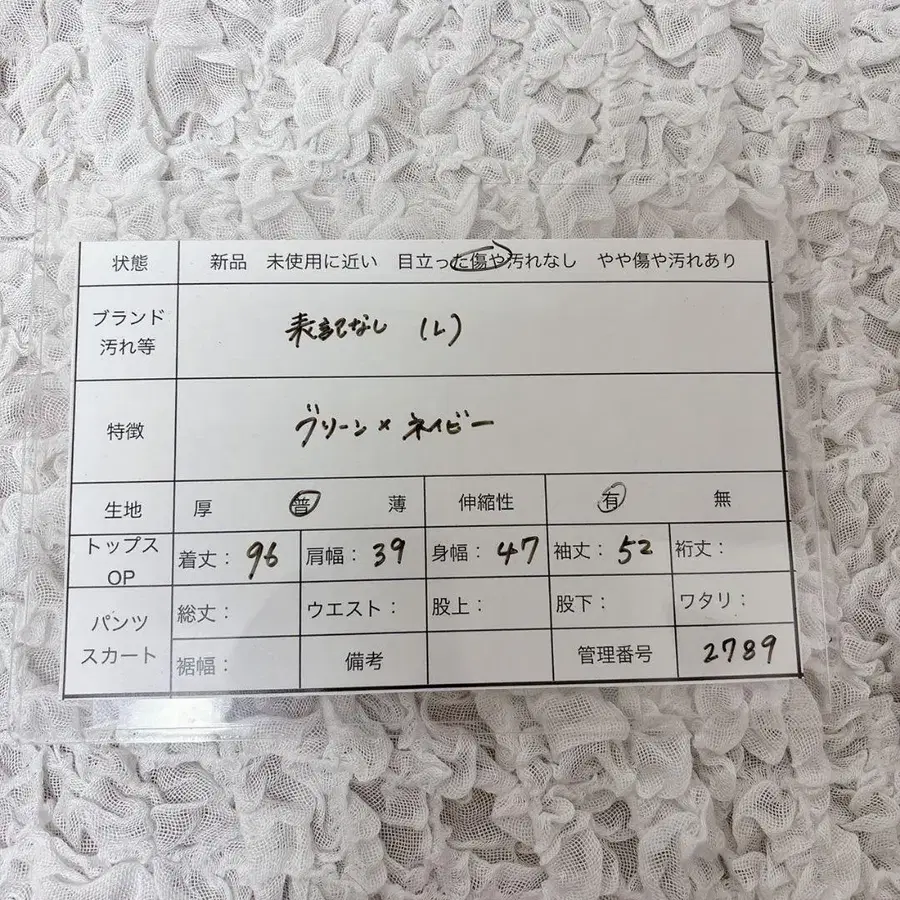 状態 新品 未使用に近い 目立った傷や汚れなし やや傷や汚れあり
ブランド
汚れ等
表記なし (L)
特徴 グリーン×ネイビー
生地 厚 普 薄 伸縮性 有 無
トップス
OP
着丈: 96 肩幅: 39 身幅: 47 袖丈: 52 裄丈:
パンツ
スカート
総丈: ウエスト: 股上: 股下: ワタリ:
裾幅: 備考 管理番号 2789